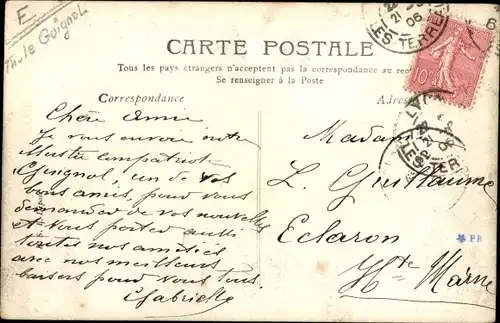 E
Th. le Guignol
CARTE POSTALE
Tous les pays étrangers n'acceptent pas la correspondance au rec
Se renseigner à la Poste
Correspondance
Adres
10c
21
06
ES TERRE
Chère Amie
Je vous envoie notre
illustre compatriote
Guignol, un de vos
bons amis, pour vous
demander de vos nouvelles
et vous porter aussi
toutes nos amitiés
avec nos meilleurs
baisers pour vous tous.
Gabrielle
Madame
L. Guillaume
Eclaron
Hte Marne
PR